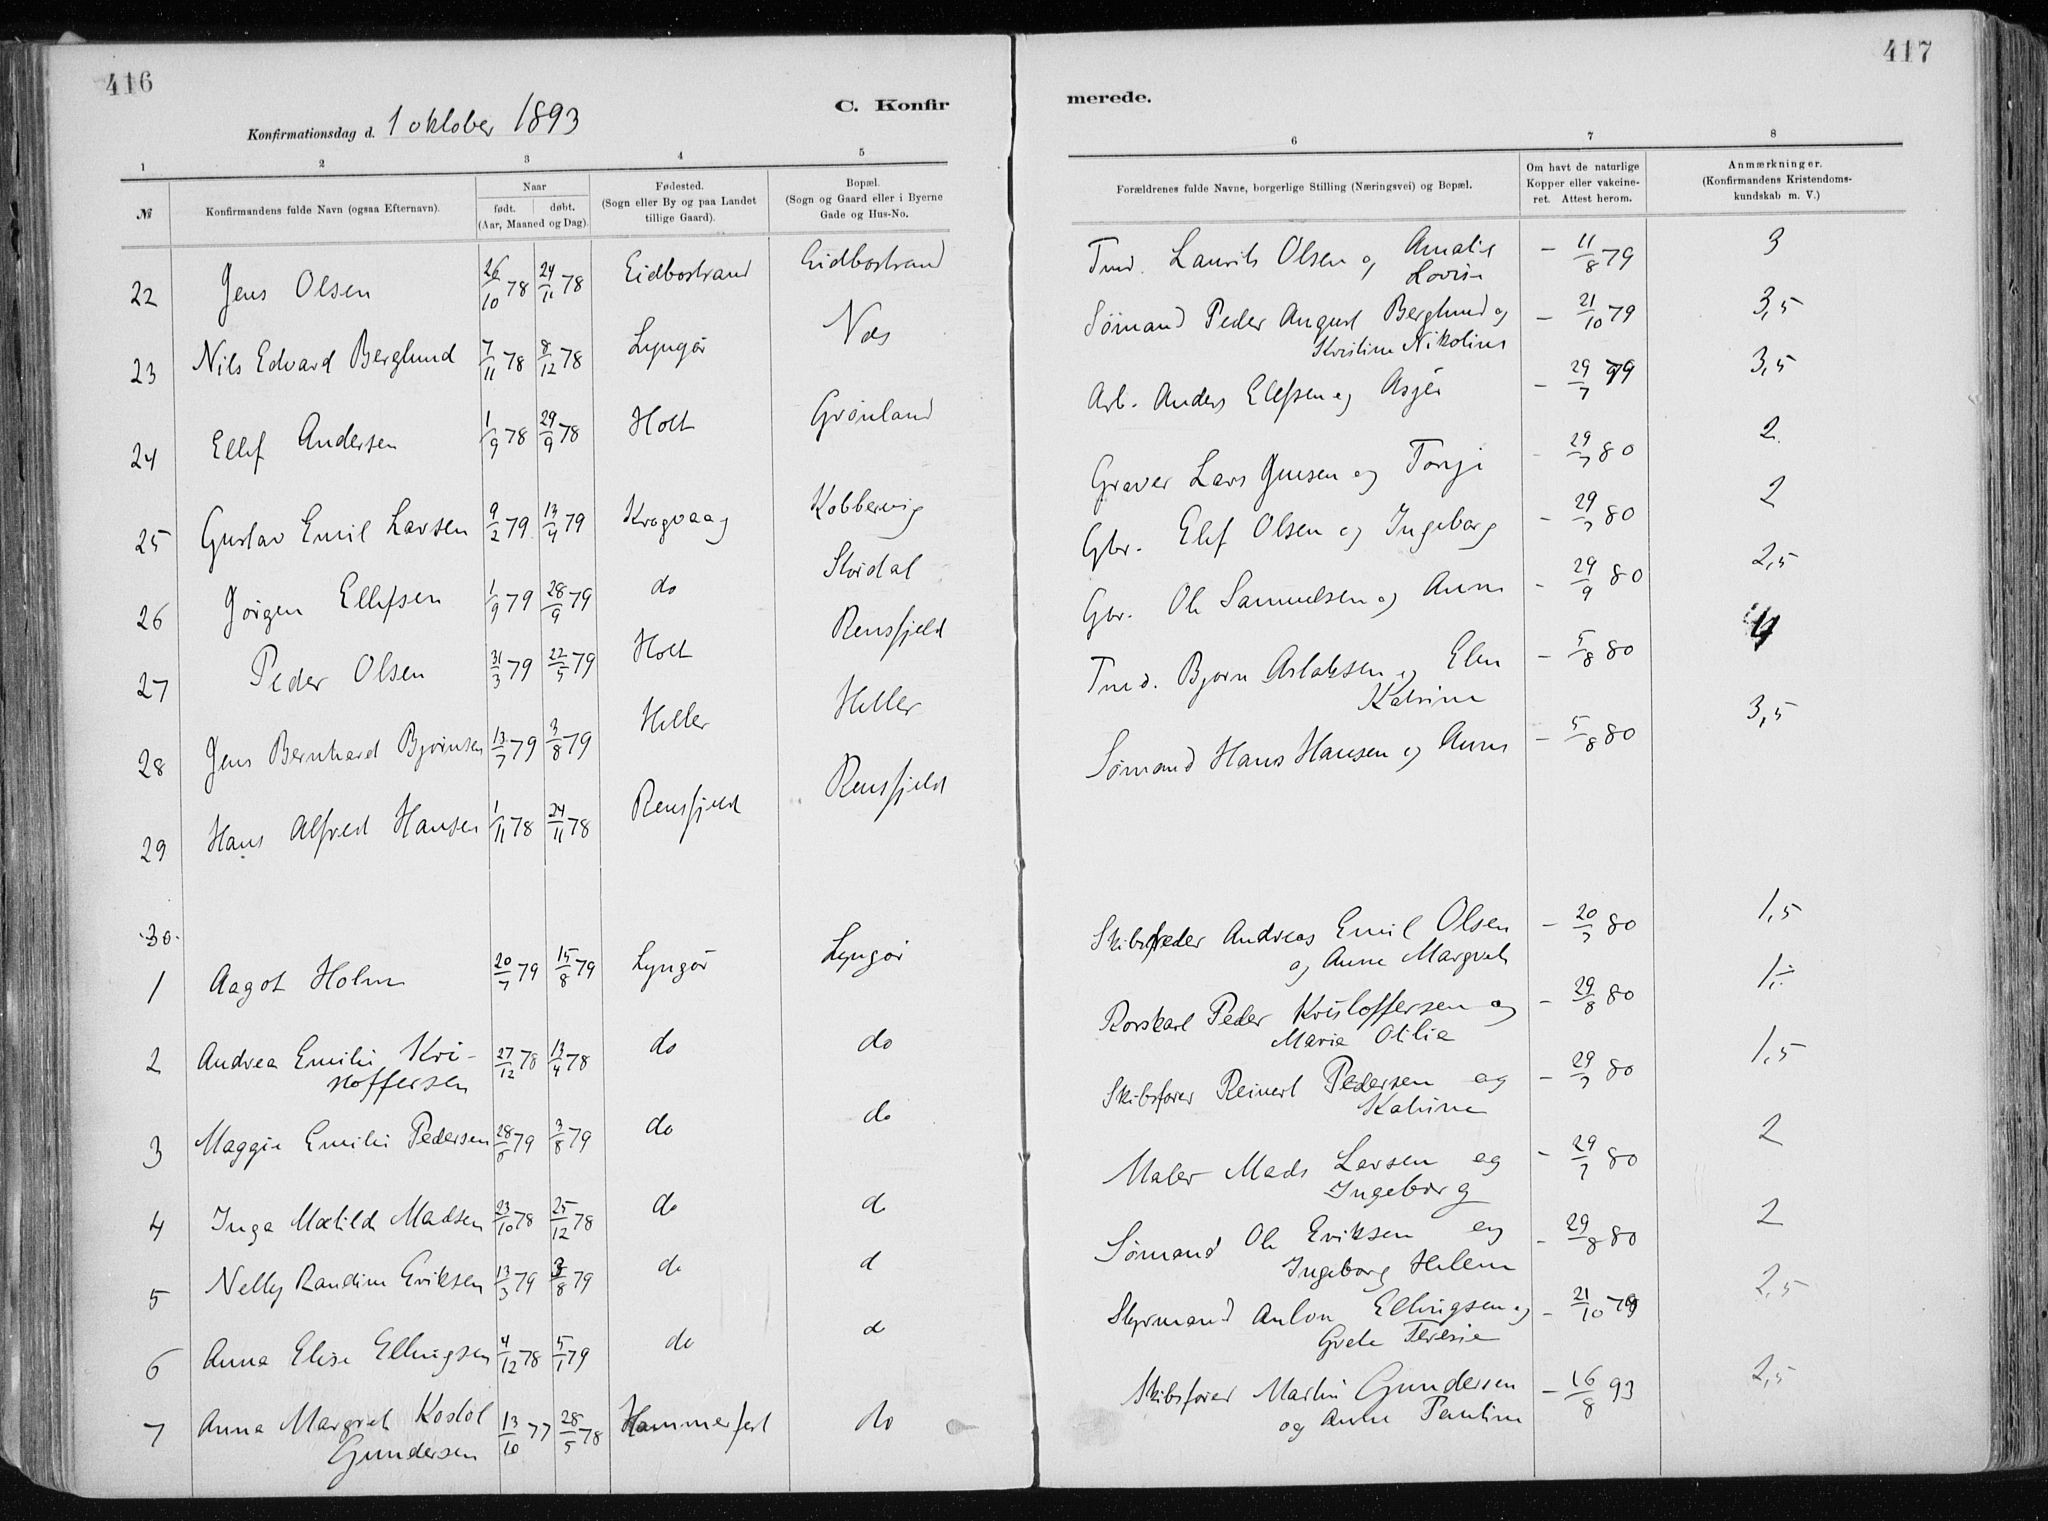 416
417
C. Konfir
merede.
Konfirmationsdag d. 1 oktober 1893
1 2 3 4 5 6 7 8
№
Konfirmandens fulde Navn (ogsaa Efternavn).
Naar
født. døbt.
(Aar, Maaned og Dag).
Fødested.
(Sogn eller By og paa Landet
tillige Gaard).
Bopæl.
(Sogn og Gaard eller i Byerne
Gade og Hus-No.
Forældrenes fulde Navne, borgerlige Stilling (Næringsvei) og Bopæl.
Om havt de naturlige
Kopper eller vakcine-
ret. Attest herom.
Anmærkninger.
(Konfirmandens Kristendoms-
kundskab m. V.)
22 Jens Olsen 26/10 78 24/11 78 Eidbostrand Eidbostrand Tmd. Laurits Olsen og Amalie – 11/8 79 3
Lovise
23 Nils Edvard Berglund 7/11 78 8/12 78 Lyngør Næs Sømand Peder August Berglund og – 21/10 79 3,5
Kristine Nikoline
24 Ellef Andersen 1/9 78 29/9 78 Holt Grønland Arb. Anders Ellefsen og Asjer – 29/7 79 3,5
25 Gustav Emil Larsen 9/2 79 13/4 79 Krogvaag Kobbervig Graver Lars Jensen og Torge – 29/7 80 2
26 Jørgen Ellefsen 1/9 79 28/9 79 do Skirdal Gbr. Elef Olsen og Ingeborg – 29/7 80 2
27 Peder Olsen 31/3 79 22/5 79 Holt Rensfjeld Gbr. Ole Samuelsen og Anne – 29/9 80 2,5
28 Jens Bernhard Bjørnsen 13/7 79 3/8 79 Heller Heller Tmd. Bjørn Aslaksen og Elen – 5/8 80 4
Katrine
29 Hans Alfred Hansen 1/11 78 24/11 78 Rensfjeld Rensfjeld Sømand Hans Hansen og Anne – 5/8 80 3,5
30
1 Aagot Holm 20/7 79 15/8 79 Lyngør Lyngør Skibsreder Andreas Emil Olsen – 20/7 80 1,5
og Anne Margret
2 Andrea Emilie Kri- 27/12 78 13/4 78 do do Rorskarl Peder Kristoffersen og – 29/8 80 1
stoffersen Maria Otilia
3 Maggie Emilie Pedersen 28/6 79 3/8 79 do do Skibsfører Reinert Pedersen og – 29/7 80 1,5
Katrine
4 Inga Matilde Madsen 23/10 78 25/12 78 do do Maler Mads Larsen og – 29/7 80 2
Ingeborg
5 Nelly Randine Eriksen 13/3 79 3/8 79 do d Sømand Ole Eriksen og – 29/8 80 2
Ingeborg Helene
6 Anna Elise Ellingsen 4/12 78 5/1 79 do d Styrmand Anton Ellingsen og – 21/10 79 2,5
Grete Teresie
7 Anna Margret Kostol 13/10 77 28/5 78 Hammerfest do Skibsfører Martin Gundersen – 16/8 93 2,5
Gundersen og Anne Pauline